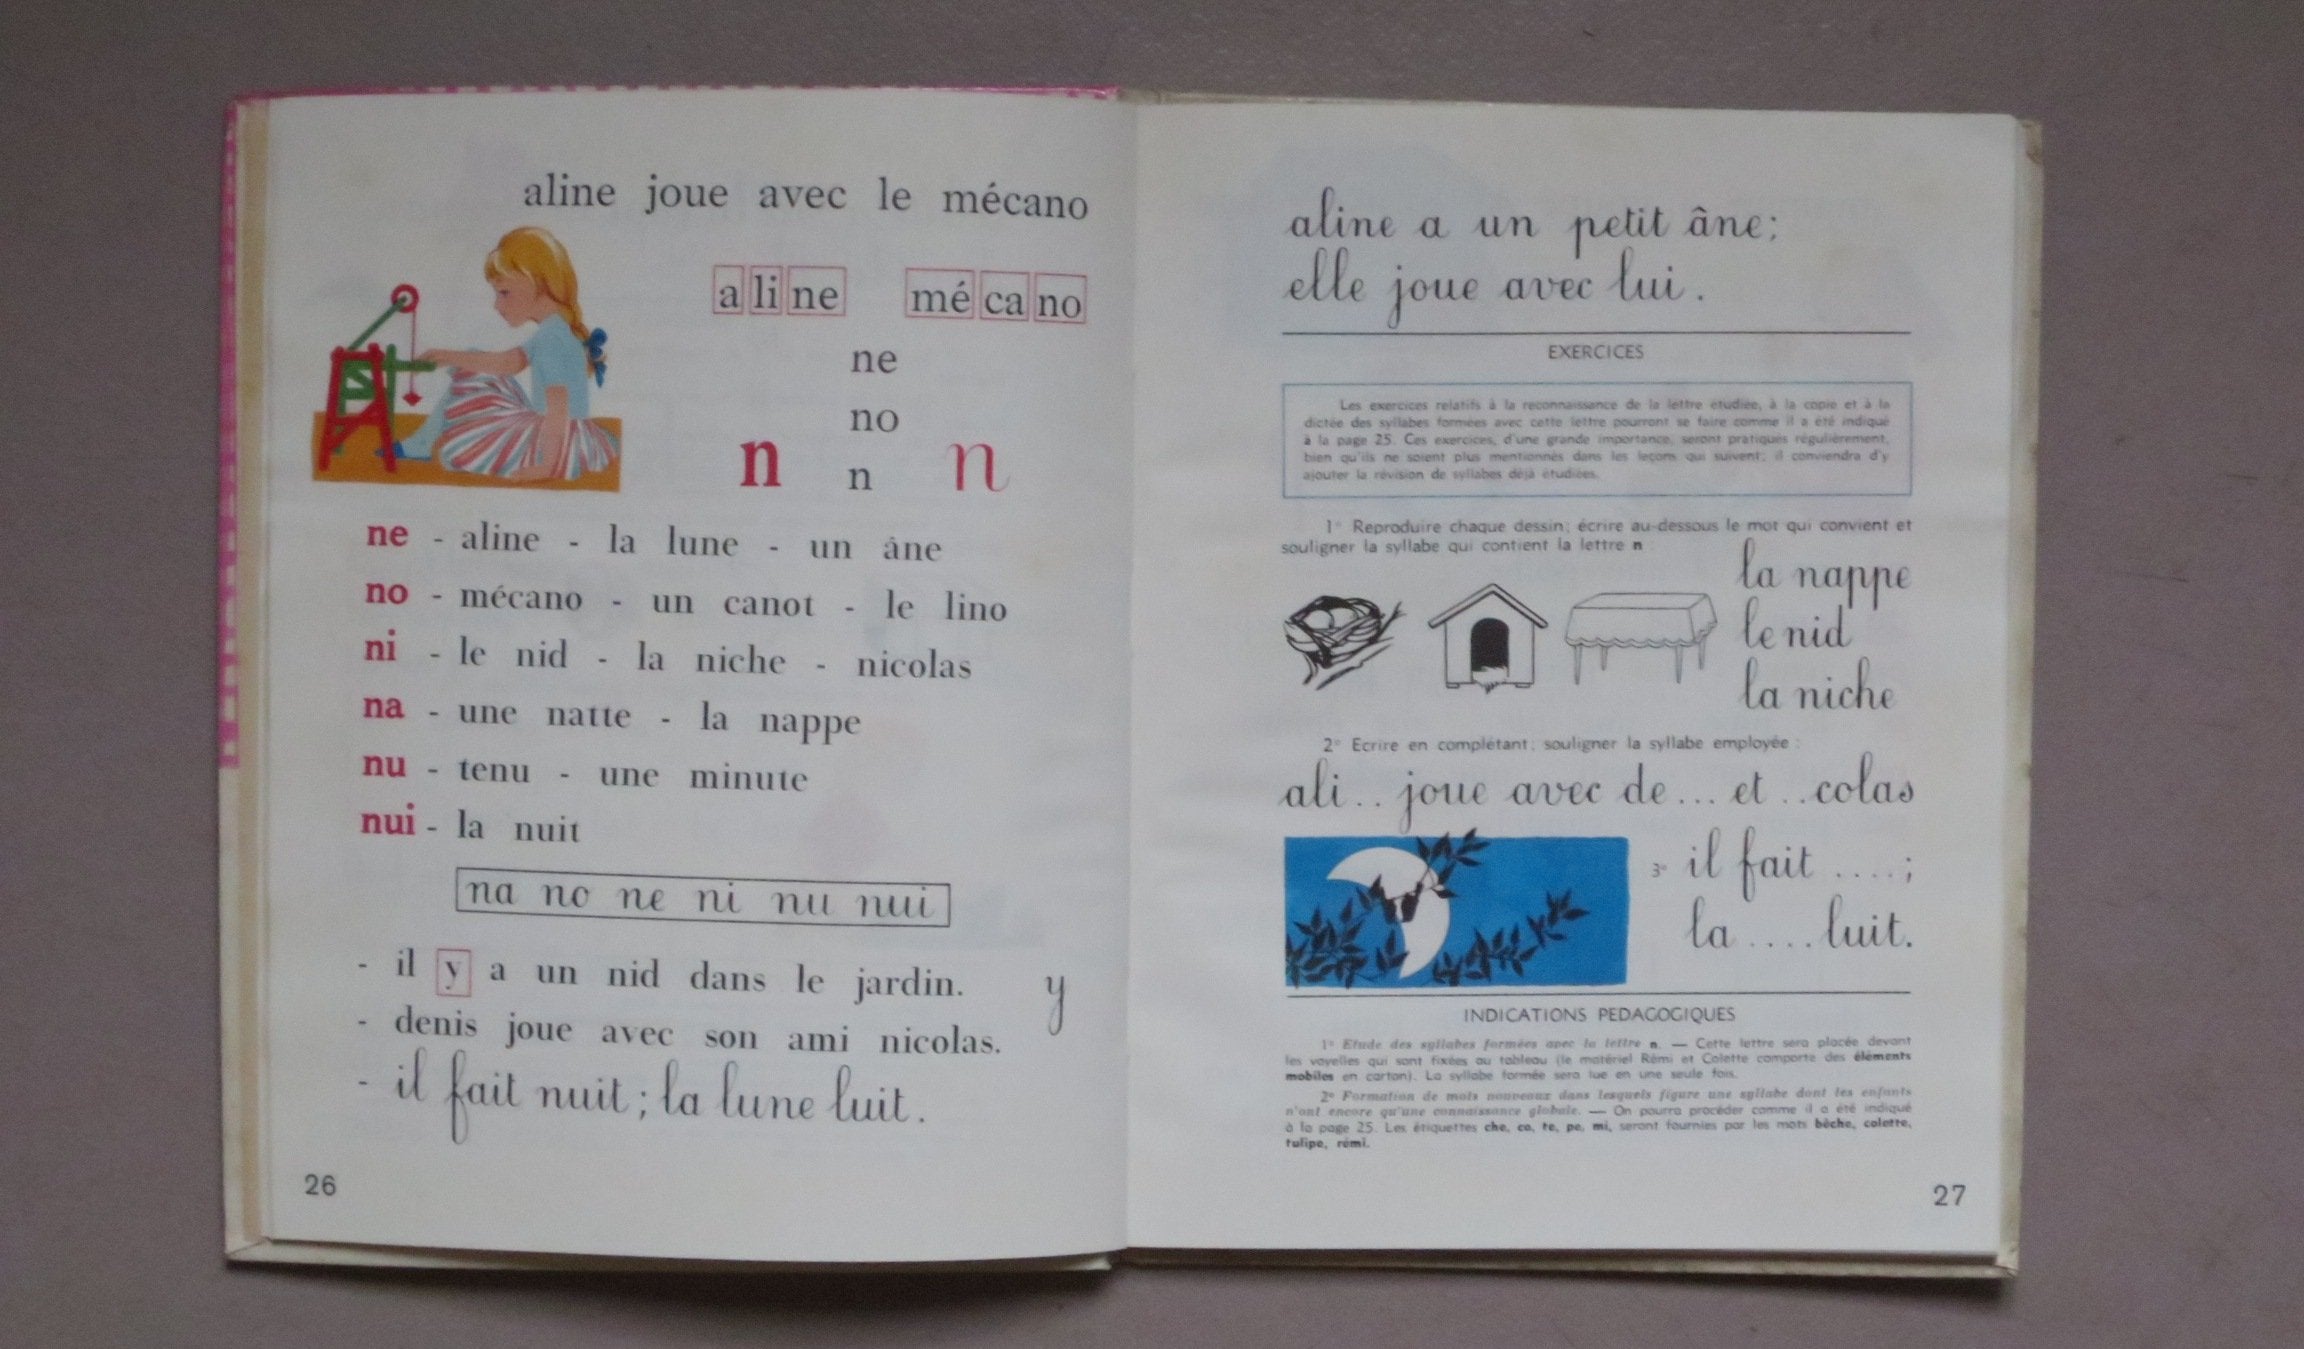 aline joue avec le mécano
a li ne mé ca no
ne
no
n n n
ne - aline - la lune - un âne
no - mécano - un canot - le lino
ni - le nid - la niche - nicolas
na - une natte - la nappe
nu - tenu - une minute
nui - la nuit
na no ne ni nu nui
- il y a un nid dans le jardin. y
- denis joue avec son ami nicolas.
- il fait nuit ; la lune luit.
26
aline a un petit âne ;
elle joue avec lui.
EXERCICES
Les exercices relatifs à la reconnaissance de la lettre étudiée, à la copie et à la
dictée des syllabes formées avec cette lettre pourront se faire comme il a été indiqué
à la page 25. Ces exercices, d'une grande importance, seront pratiqués régulièrement,
bien qu'ils ne soient plus mentionnés dans les leçons qui suivent; il conviendra d'y
ajouter la révision de syllabes déjà étudiées.
1° Reproduire chaque dessin; écrire au-dessous le mot qui convient et
souligner la syllabe qui contient la lettre n :
la nappe
le nid
la niche
2° Ecrire en complétant; souligner la syllabe employée :
ali . . joue avec de . . . et . . colas
3° il fait . . . . ;
la . . . . luit.
INDICATIONS PEDAGOGIQUES
1° Etude des syllabes formées avec la lettre n. — Cette lettre sera placée devant
les voyelles qui sont fixées au tableau (le matériel Rémi et Colette comporte des éléments
mobiles en carton). La syllabe formée sera lue en une seule fois.
2° Formation de mots nouveaux dans lesquels figure une syllabe dont les enfants
n'ont encore qu'une connaissance globale. — On pourra procéder comme il a été indiqué
à la page 25. Les étiquettes che, co, te, pe, mi, seront fournies par les mots bêche, colette,
tulipe, rémi.
27